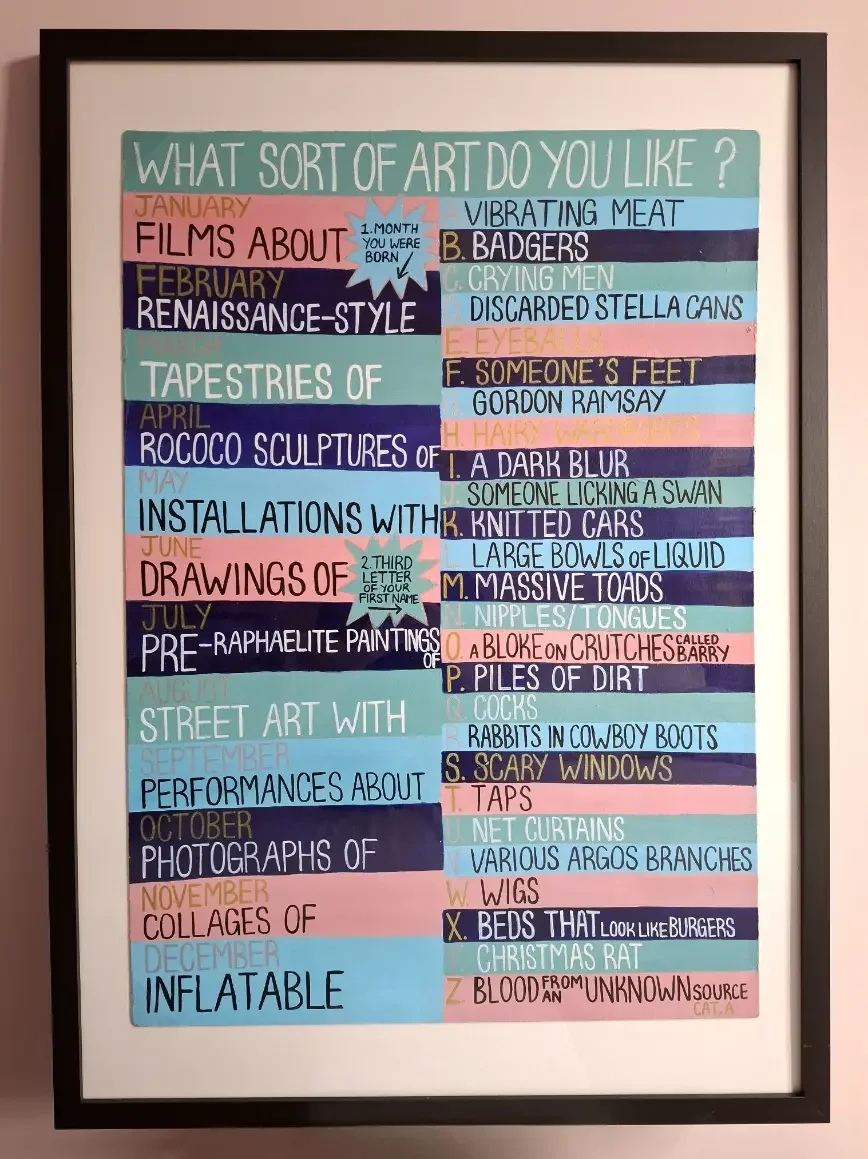 WHAT SORT OF ART DO YOU LIKE ?
JANUARY
FILMS ABOUT
1. MONTH
YOU WERE
BORN
FEBRUARY
RENAISSANCE-STYLE
MARCH
TAPESTRIES OF
APRIL
ROCOCO SCULPTURES OF
MAY
INSTALLATIONS WITH
JUNE
DRAWINGS OF
2. THIRD
LETTER
OF YOUR
FIRST NAME
JULY
PRE-RAPHAELITE PAINTINGS
OF
AUGUST
STREET ART WITH
SEPTEMBER
PERFORMANCES ABOUT
OCTOBER
PHOTOGRAPHS OF
NOVEMBER
COLLAGES OF
DECEMBER
INFLATABLE
A. VIBRATING MEAT
B. BADGERS
C. CRYING MEN
D. DISCARDED STELLA CANS
E. EYEBALLS
F. SOMEONE'S FEET
G. GORDON RAMSAY
H. HAIRY
I. A DARK BLUR
J. SOMEONE LICKING A SWAN
K. KNITTED CARS
L. LARGE BOWLS OF LIQUID
M. MASSIVE TOADS
N. NIPPLES/TONGUES
O. A BLOKE ON CRUTCHES CALLED BARRY
P. PILES OF DIRT
Q. COCKS
R. RABBITS IN COWBOY BOOTS
S. SCARY WINDOWS
T. TAPS
U. NET CURTAINS
V. VARIOUS ARGOS BRANCHES
W. WIGS
X. BEDS THAT LOOK LIKE BURGERS
Y. CHRISTMAS RAT
Z. BLOOD FROM AN UNKNOWN SOURCE
CAT. A